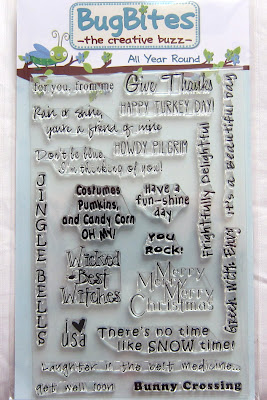 BugBites
-the creative buzz-
All Year Round
for you, from me
Give Thanks
Rain or shine,
you're a friend of mine
HAPPY TURKEY DAY!
Don't be blue,
i'm thinking of you!
HOWDY PILGRIM
Frightfully Delightful
it's a beautiful day
JINGLE BELLS
Costumes
Pumpkins,
and Candy Corn
OH MY!
Have a
fun-shine
day
YOU
ROCK!
Wicked
Best
Witches
Merry
Merry
Merry
Christmas
usa
There's no time
like SNOW time!
Laughter is the best medicine...
get well soon
Bunny Crossing